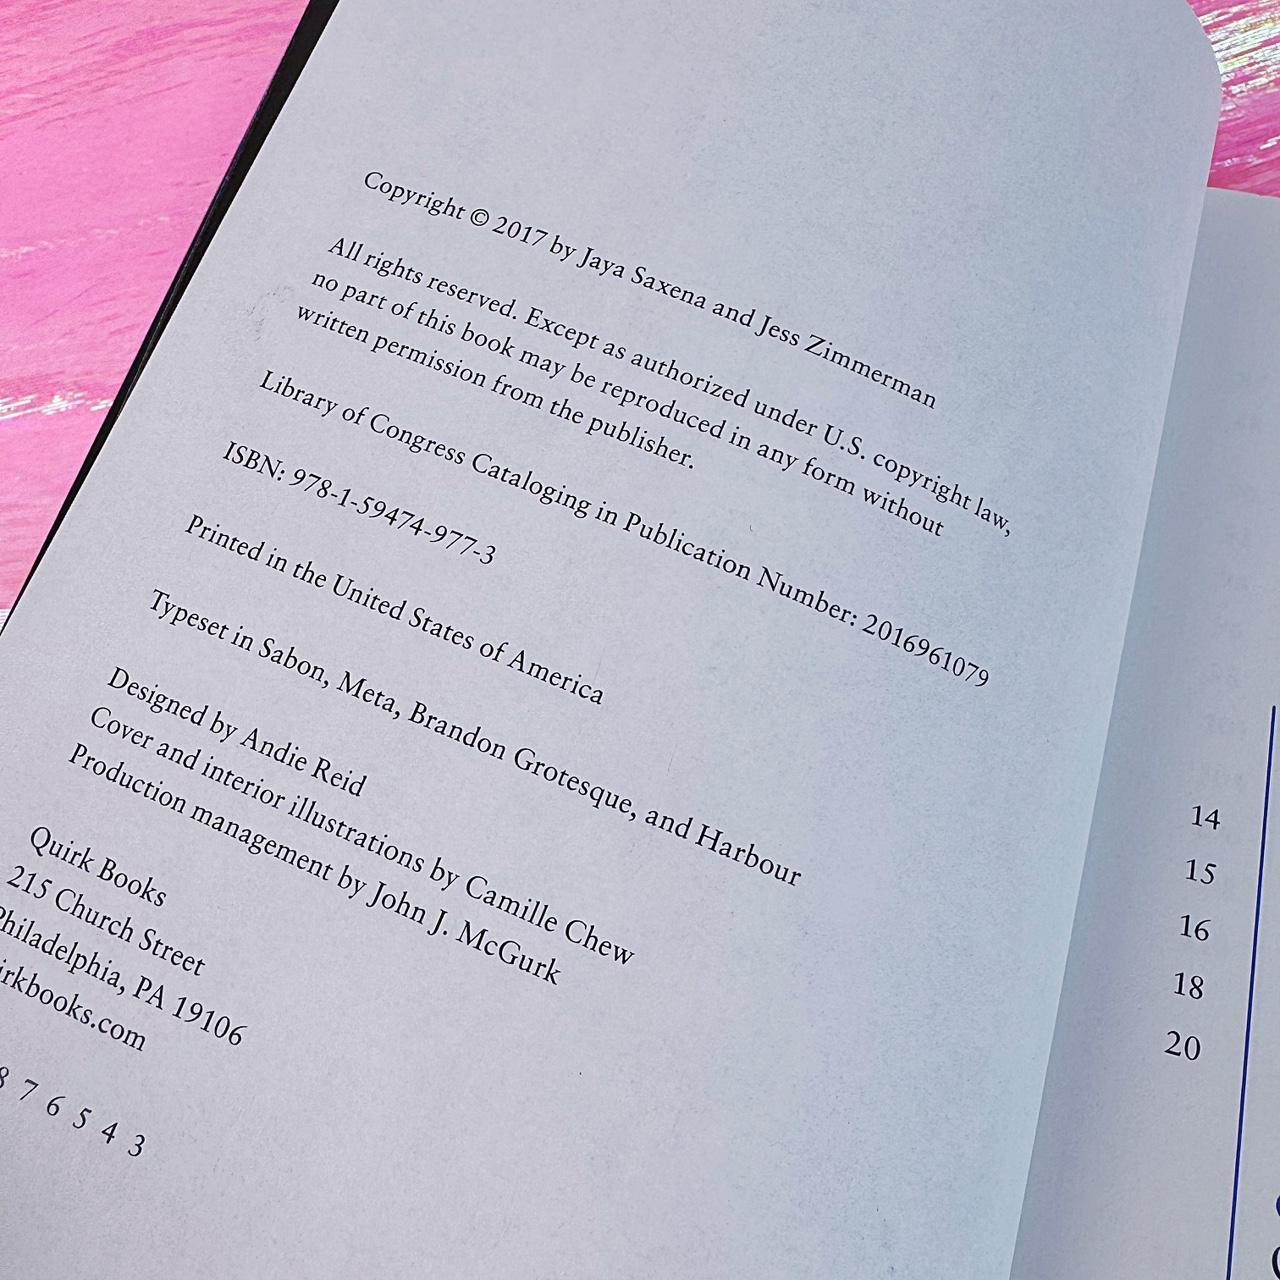 Copyright © 2017 by Jaya Saxena and Jess Zimmerman
All rights reserved. Except as authorized under U.S. copyright law,
no part of this book may be reproduced in any form without
written permission from the publisher.
Library of Congress Cataloging in Publication Number: 2016961079
ISBN: 978-1-59474-977-3
Printed in the United States of America
Typeset in Sabon, Meta, Brandon Grotesque, and Harbour
Designed by Andie Reid
Cover and interior illustrations by Camille Chew
Production management by John J. McGurk
Quirk Books
215 Church Street
Philadelphia, PA 19106
irkbooks.com
8 7 6 5 4 3
14
15
16
18
20